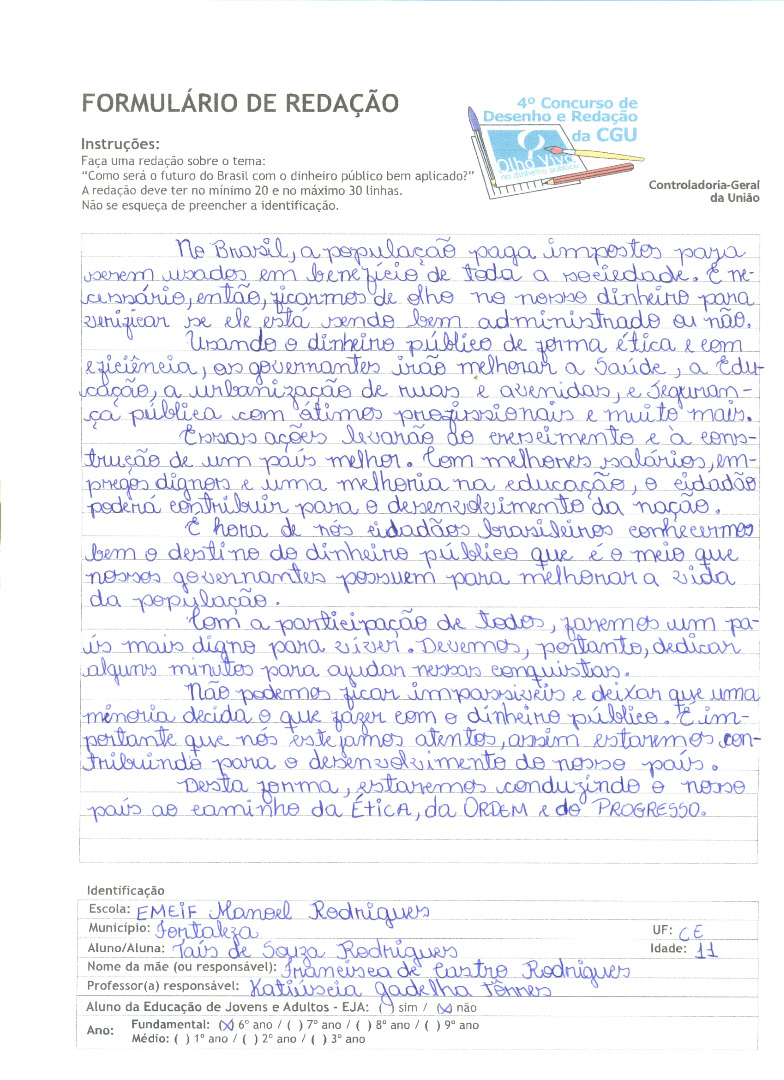 FORMULÁRIO DE REDAÇÃO
4º Concurso de
Desenho e Redação
da CGU
Olho Vivo
no dinheiro público
Controladoria-Geral
da União
Instruções:
Faça uma redação sobre o tema:
“Como será o futuro do Brasil com o dinheiro público bem aplicado?”
A redação deve ter no mínimo 20 e no máximo 30 linhas.
Não se esqueça de preencher a identificação.
No Brasil, a população paga impostos para
serem usados em benefício de toda a sociedade. É ne-
cessário, então, ficarmos de olho no nosso dinheiro para
verificar se ele está sendo bem administrado ou não.
Usando o dinheiro público de forma ética e com
eficiência, os governantes irão melhorar a Saúde, a Edu-
cação, a urbanização de ruas e avenidas, e Seguran-
ça pública com ótimos profissionais e muito mais.
Essas ações levarão ao crescimento e à cons-
trução de um país melhor. Com melhores salários, em-
pregos dignos e uma melhoria na educação, o cidadão
poderá contribuir para o desenvolvimento da nação.
É hora de nós cidadãos brasileiros conhecermos
bem o destino do dinheiro público que é o meio que
nossos governantes possuem para melhorar a vida
da população.
Com a participação de todos, faremos um pa-
ís mais digno para viver. Devemos, portanto, dedicar
alguns minutos para ajudar nessas conquistas.
Não podemos ficar impassíveis e deixar que uma
minoria decida o que fazer com o dinheiro público. É im-
portante que nós estejamos atentos, assim estaremos con-
tribuindo para o desenvolvimento do nosso país.
Desta forma, estaremos conduzindo o nosso
país ao caminho da Ética, da ORDEM e do PROGRESSO.
Identificação
Escola: EMEIF Manoel Rodrigues
Município: Fortaleza UF: CE
Aluno/Aluna: Taís de Souza Rodrigues Idade: 11
Nome da mãe (ou responsável): Francisca de Castro Rodrigues
Professor(a) responsável: Katiúscia Gadelha Tôrres
Aluno da Educação de Jovens e Adultos - EJA: ( ) sim / (x) não
Ano: Fundamental: (x) 6º ano / ( ) 7º ano / ( ) 8º ano / ( ) 9º ano
Médio: ( ) 1º ano / ( ) 2º ano / ( ) 3º ano